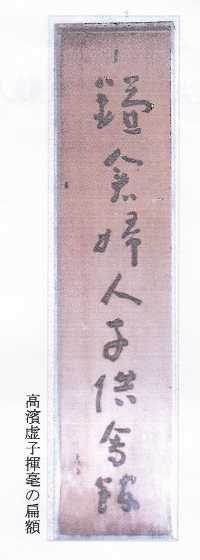 鎌倉婦人子供會館
高濱虚子揮毫の扁額